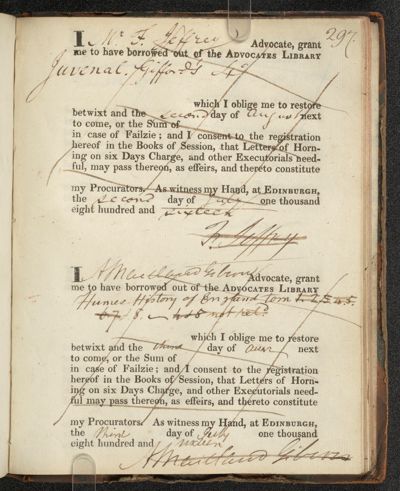 297.
I Mr F. Jeffrey Advocate, grant
me to have borrowed out of the ADVOCATES LIBRARY
Juvenal. Gifford's
which I oblige me to restore
betwixt and the second day of August next
to come, or the Sum of
in case of Failzie; and I consent to the registration
hereof in the Books of Session, that Letters of Horn-
ing on six Days Charge, and other Executorials need-
ful, may pass thereon, as effeirs, and thereto constitute
my Procurators. As witness my Hand, at EDINBURGH,
the second day of July one thousand
eight hundred and sixteen
F. Jeffrey
I A Maitland Gibson Advocate, grant
me to have borrowed out of the ADVOCATES LIBRARY
Humes History of England tom 1. 2. 3. 4. 5.
8. not retd
which I oblige me to restore
betwixt and the third day of next
to come, or the Sum of
in case of Failzie; and I consent to the registration
hereof in the Books of Session, that Letters of Horn-
ing on six Days Charge, and other Executorials need-
ful may pass thereon, as effeirs, and thereto constitute
my Procurators. As witness my Hand, at EDINBURGH,
the third day of July one thousand
eight hundred and sixteen
A Maitland Gibson